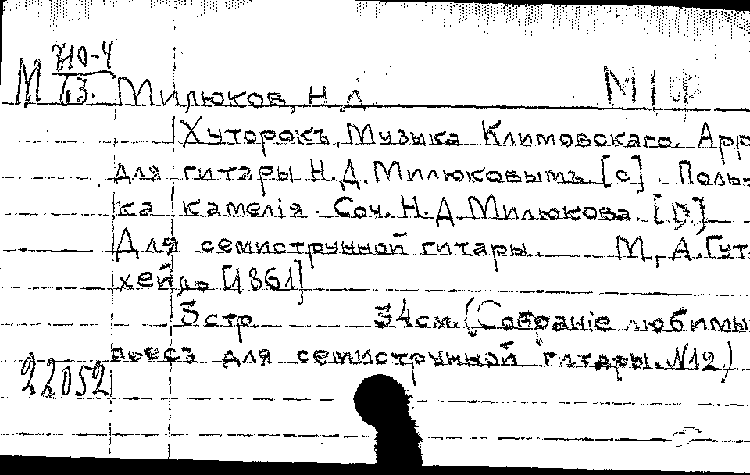 М 710-4 / 63. Милюков, Н. Д. М I
Хуторокъ. Музыка Климовскаго. Арр
для гитары Н. Д. Милюковымъ [c]. Поль
ка камелія. Соч. Н. Д. Милюкова. [D]
Для семиструнной гитары. М, А. Гут
хейль [1861]
5 стр 34 см. (Собраніе любимы
пьесъ для семиструнной гитары. №12)
22052